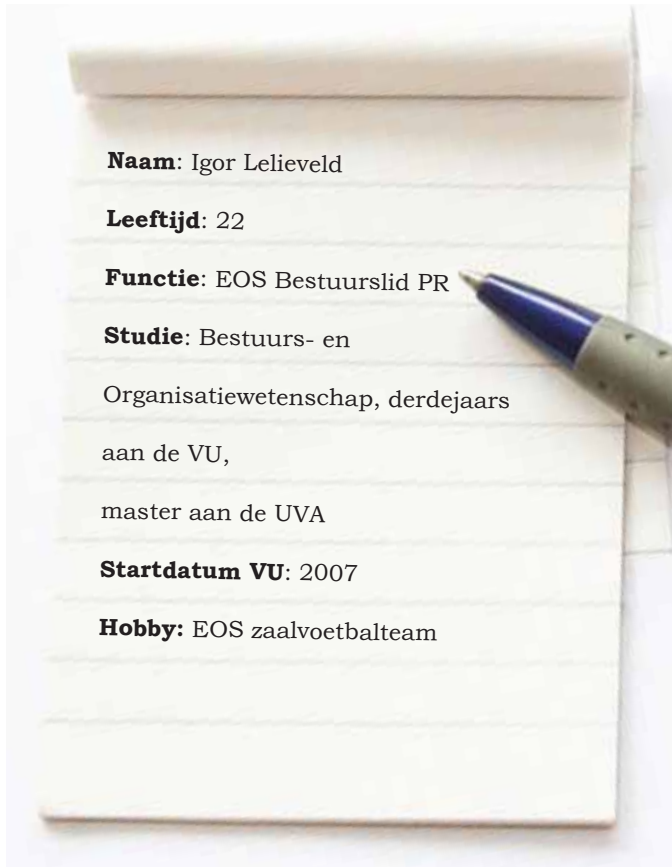 Naam: Igor Lelieveld
Leeftijd: 22
Functie: EOS Bestuurslid PR
Studie: Bestuurs- en
Organisatiewetenschap, derdejaars
aan de VU,
master aan de UVA
Startdatum VU: 2007
Hobby: EOS zaalvoetbalteam